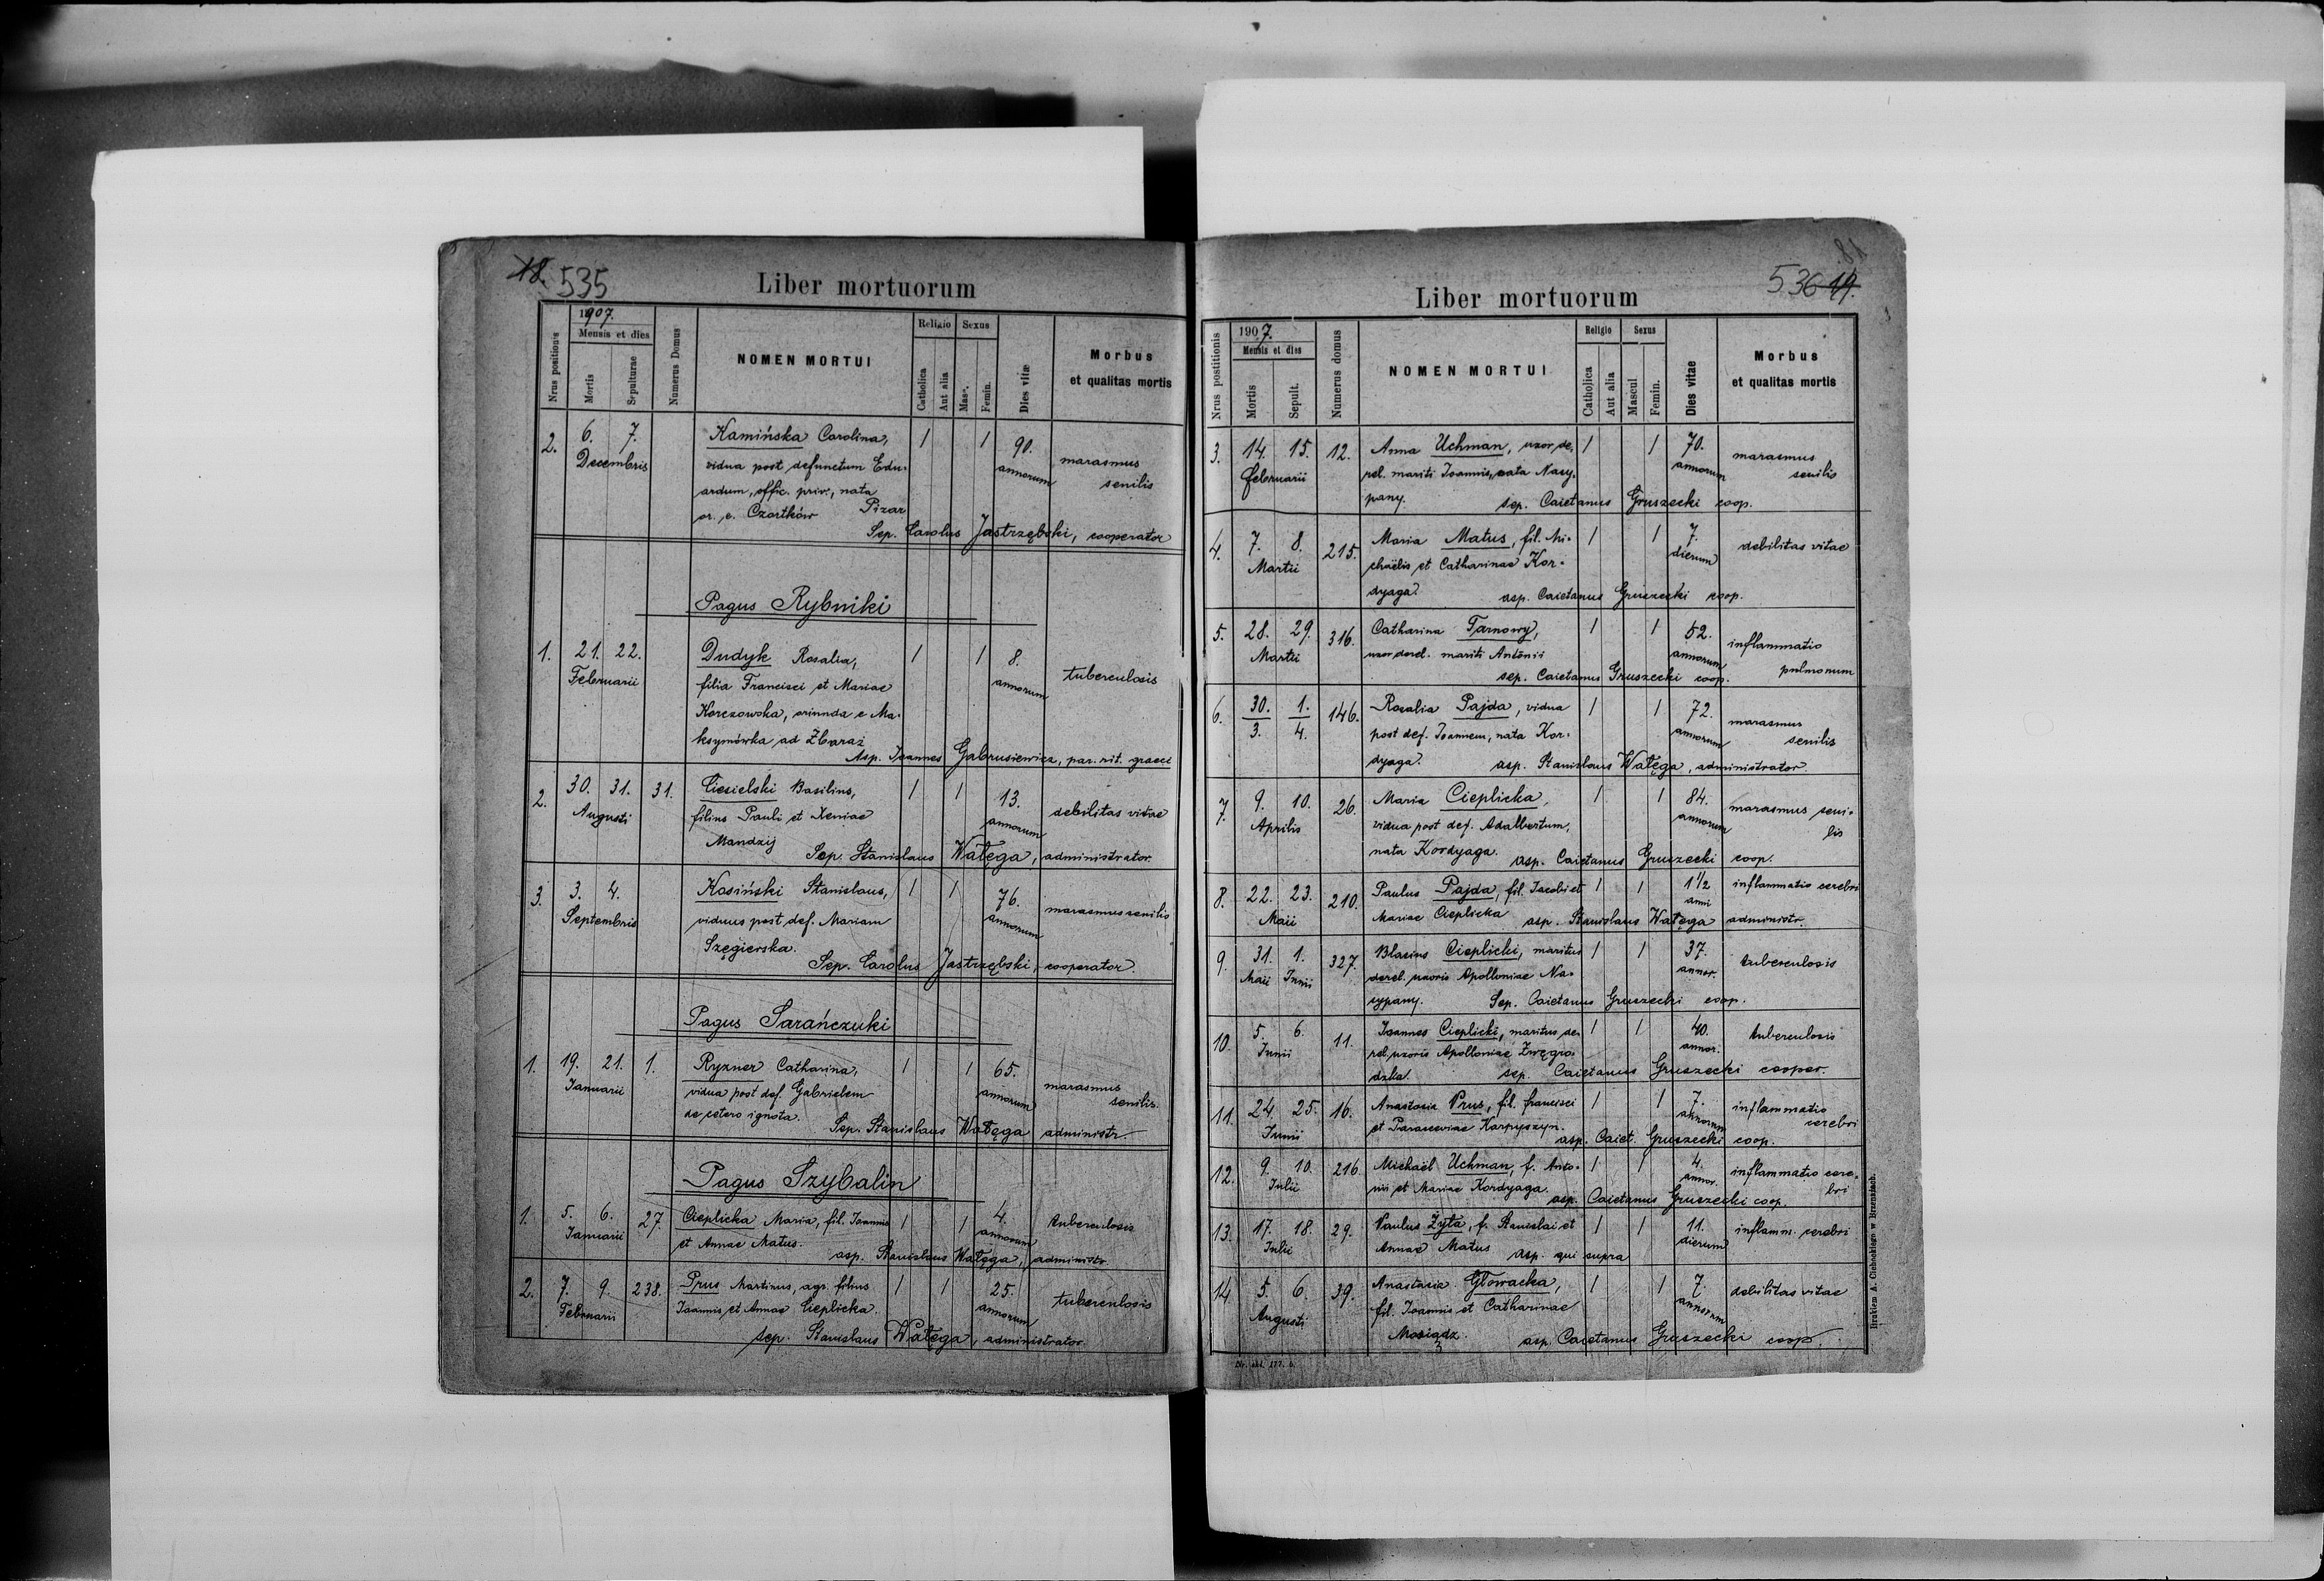 18. 535
Liber mortuorum
Nrus positionis
1907.
Mensis et dies
Mortis
Sepulturae
Numerus Domus
NOMEN MORTUI
Religio
Catholica
Aut alia
Sexus
Masc.
Femin.
Dies vitæ
Morbus
et qualitas mortis
2. 6. 7. Kamińska Carolina, / / 90.
Decembris vidua post defunctum Edu- annorum marasmus
ardum, offic. priv., nata senilis
or. e. Czortków Pizar
Sep. Carolus Jastrzębski, cooperator
Pagus Rybniki
1. 21. 22. Dudyk Rosalia, / / 8.
Februarii filia Francisci et Mariae annorum tuberculosis
Korczowska, oriunda e Ma-
ksymówka ad Zbaraż
Asp. Ioannes Gabrusiewicz, par. rit. graeci
2. 30. 31. 31. Ciesielski Basilius, / / 13.
Augusti filius Pauli et Xeniae annorum debilitas vitae
Mandzij
Sep. Stanislaus Wałęga, administrator.
3. 3. 4. Kosiński Stanislaus, / / 76.
Septembris viduus post def. Mariam annorum marasmus senilis
Szęgierska.
Sep. Carolus Jastrzębski, cooperator.
Pagus Sarańczuki
1. 19. 21. 1. Ryzner Catharina, / / 65.
Ianuarii vidua post def. Gabrielem annorum marasmus
de cetero ignota. senilis.
Sep. Stanislaus Wałęga administr.
Pagus Szybalin
1. 5. 6. 27. Cieplicka Maria, fil. Ioannis / / 4. tuberculosis
Ianuarii et Annae Matus. annorum
asp. Stanislaus Wałęga, administr.
2. 7. 9. 238. Prus Martinus, agr. filius / / 25.
Februarii Ioannis et Annae Cieplicka. annorum tuberculosis
sep. Stanislaus Wałęga, administrator.
536 19.
Liber mortuorum
Nrus postitionis
1907.
Mensis et dies
Mortis
Sepult.
Numerus domus
NOMEN MORTUI
Religio
Catholica
Aut alia
Sexus
Mascul
Femin.
Dies vitae
Morbus
et qualitas mortis
3. 14. 15. 12. Anna Uchman, uxor de- / / 70.
Februarii rel. mariti Ioannis, nata Nasy- annorum marasmus senilis
pany. sep. Caietanus Gruszecki coop.
4. 7. 8. 215. Maria Matus, fil. Mi- / / 7. debilitas vitae
Martii chaëlis et Catharinae Kor- dierum
dyaga. asp. Caietanus Gruszecki coop.
5. 28. 29. 316. Catharina Tarnowy, / / 52. inflammatio
Martii uxor derel. mariti Antonii annorum pulmonum
sep. Caietanus Gruszecki coop.
6. 30. 1. 146. Rosalia Pajda, vidua / / 72. marasmus
3. 4. post def. Ioannem, nata Kor- annorum senilis
dyaga. asp. Stanislaus Wałęga, administrator.
7. 9. 10. 26. Maria Cieplicka, / / 84. marasmus seni-
Aprilis vidua post def. Adalbertum, annorum lis
nata Kordyaga. asp. Caietanus Gruszecki coop.
8. 22. 23. 210. Paulus Pajda, fil. Iacobi et / / 1 1/2 inflammatio cerebri
Maii Mariae Cieplicka anni
asp. Stanislaus Wałęga administr.
9. 31. 1. 327. Blasius Cieplicki, maritus / / 37. tuberculosis
Maii Iunii derel. uxoris Apolloniae Na- annor.
sypany. Sep. Caietanus Gruszecki coop.
10. 5. 6. 11. Ioannes Cieplicki, maritus de- / / 40. tuberculosis
Iunii rel. uxoris Apolloniae annor.
sep. Caietanus Gruszecki cooper.
11. 24. 25. 16. Anastasia Prus, fil. Francisci / / 7. inflammatio
Iunii et Parasceviae Karpyszyn. annorum cerebri
asp. Caiet. Gruszecki coop.
12. 9. 10. 216. Michaël Uchman, f. Anto- / / 4. inflammatio cere-
Iulii nii et Mariae Kordyaga. annor. bri
asp. Caietanus Gruszecki coop.
13. 17. 18. 29. Paulus Żyta, f. Stanislai et / / 11. inflamm. cerebri
Iulii Annae Matus asp. qui supra dierum
14. 5. 6. 39. Anastasia Głowacka, / / 7. debilitas vitae
Augusti fil. Ioannis et Catharinae annorum
Mosiądz. asp. Caietanus Gruszecki coop.
Drukiem A. Ciebockiego w Brzeżanach.